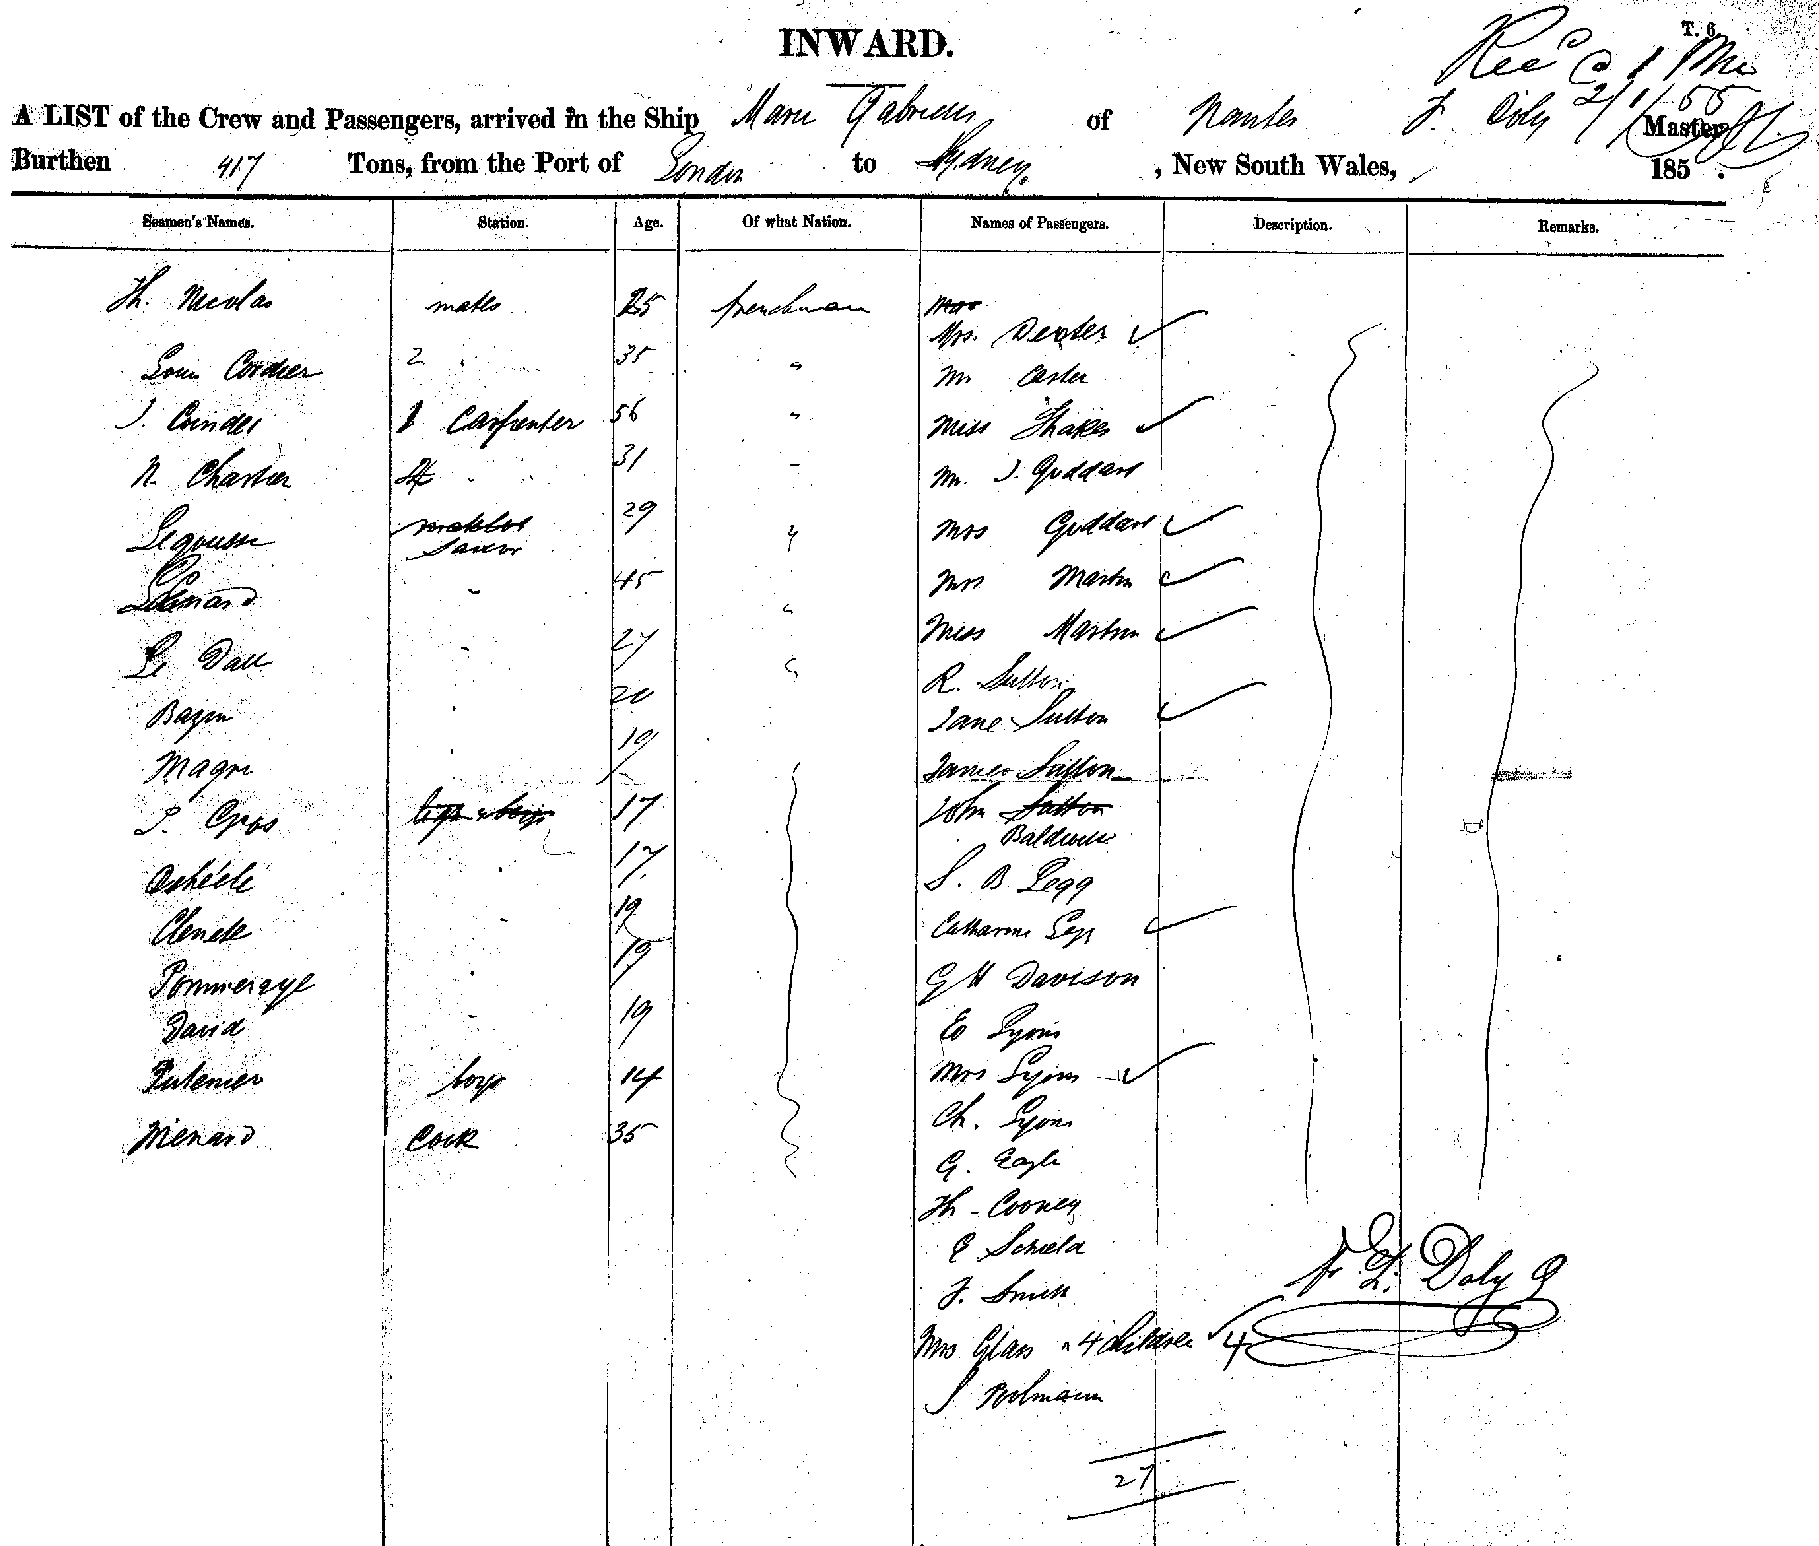 INWARD.
T. 6
Rec^d
2/1/55
A LIST of the Crew and Passengers, arrived in the Ship Marie Gabrielle of Nantes F. Doly Master
Burthen 417 Tons, from the Port of London to Sydney, New South Wales, 185 .
Seamen's Names. Station. Age. Of what Nation. Names of Passengers. Description. Remarks.
Th. Nicolas mates 25 frenchman
Mrs. Dexter
Louis Cordier 2 " 35 "
Mr Carter
J. Carpenter 56 " Miss Shakes
N. Chartier 31 " Mr. J. Goddard
29 " Mrs Goddard
Sailor
45 " Mrs Martin
27 " Miss Martin
Le Dall
R. Sutton
Bazin 20 Jane Sutton
Magre 19 James Sutton
P. Gros 17 John Sutton
Baldwin
17 S. B Legg
19 Catharine Legg
Pommeraye 19 G H Davison
David 19 Ed Lyons
boys 14 Mrs Lyons
Ch. Lyons
Menard Cook 35
G. Eagle
Th - Cooney
E Schield
F. Smith
Mrs Glass " 4 children 4
J Bolmann
F. L. Doly
27